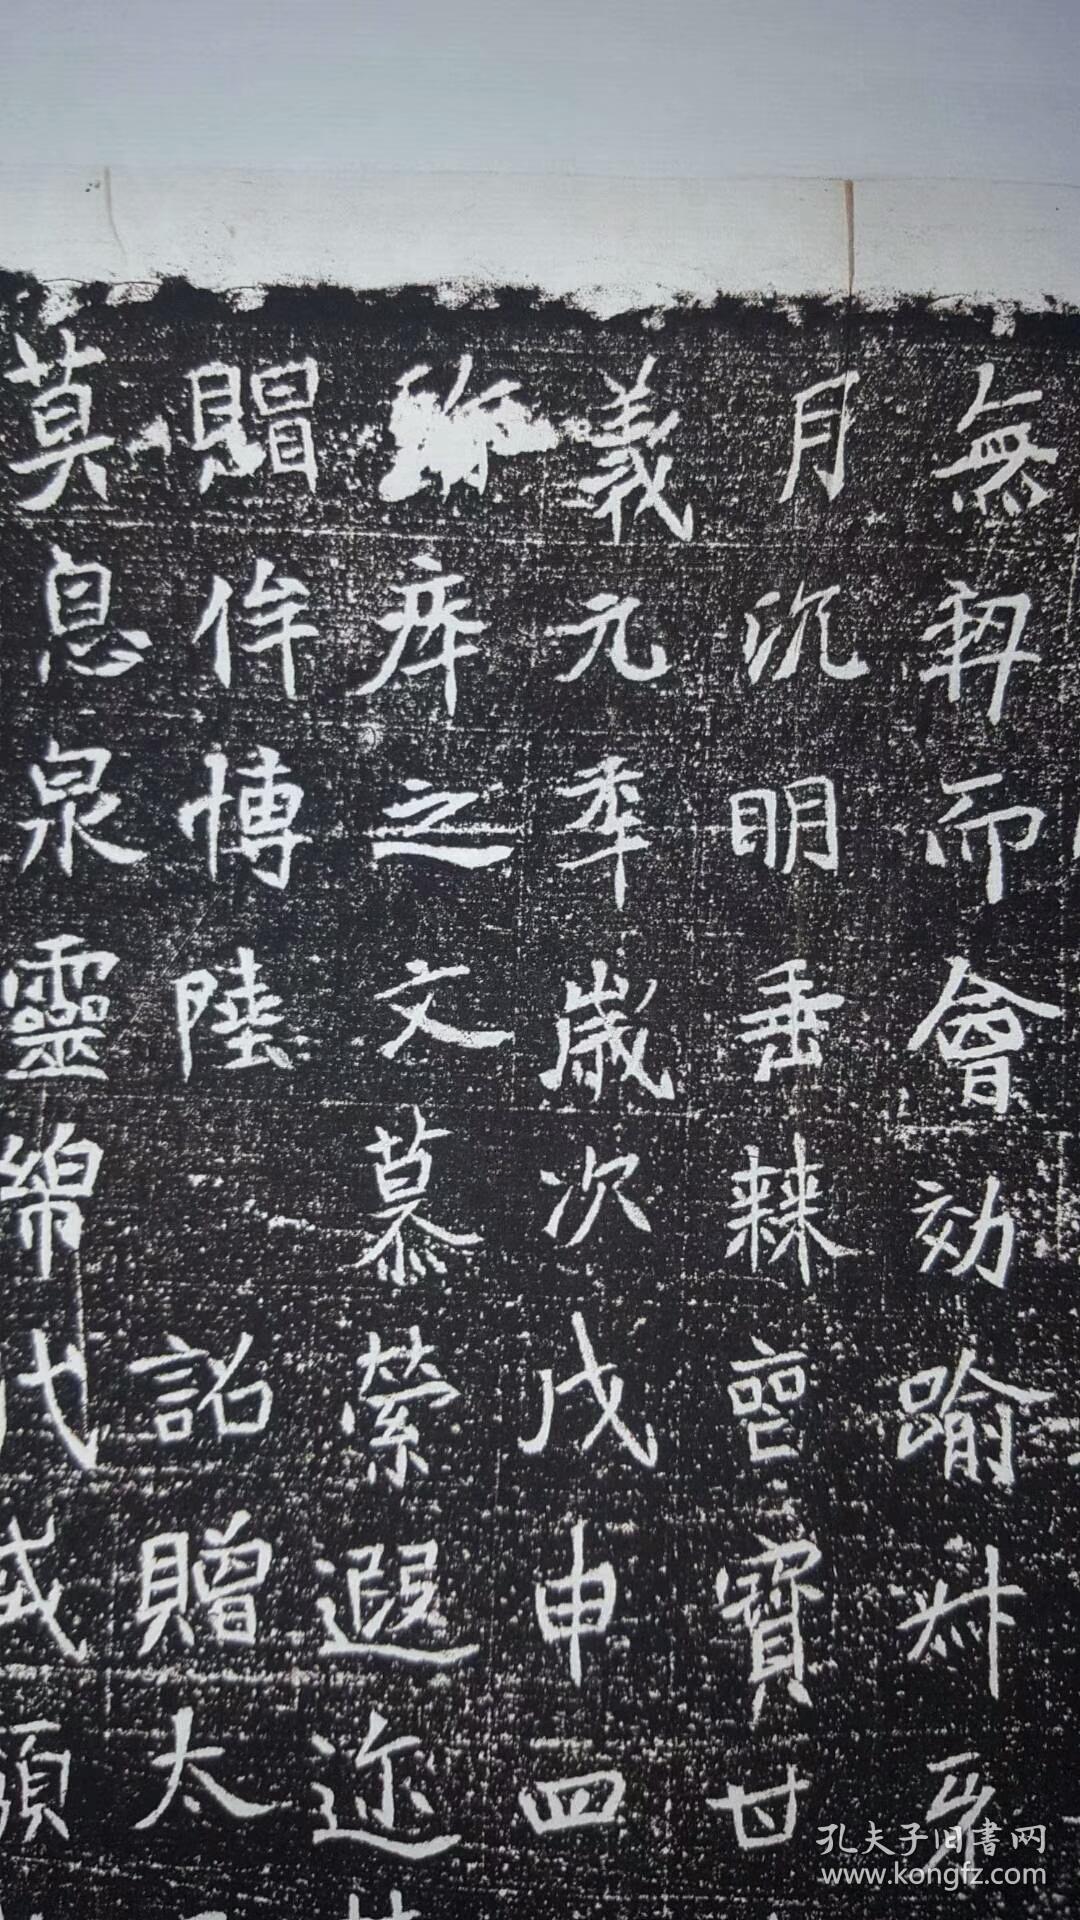 無契而會効踰
月沉明垂棘寶甘
義元年歲次戊申四
瘁之文慕縈遐迩
賵侔博陸詔贈太
莫息泉靈綿代
孔夫子旧書网
www.kongfz.com